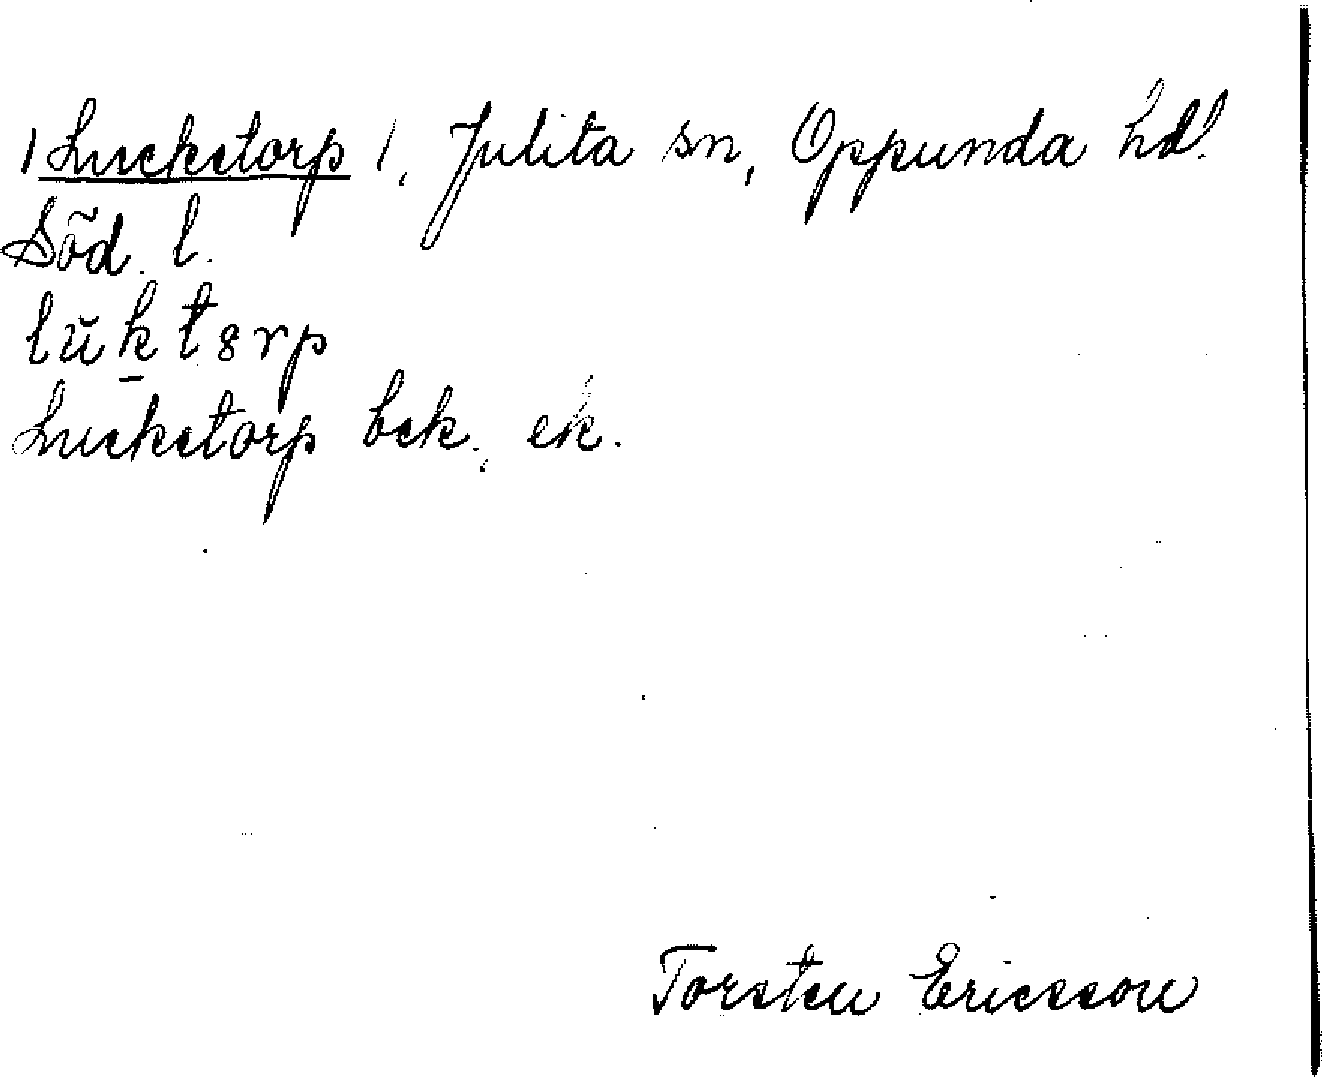 /Luckstorp/, Julita sn, Oppunda hd.
Söd. l.
lŭk̠tȣrp
Luckstorp bek., ek.
Torsten Ericsson